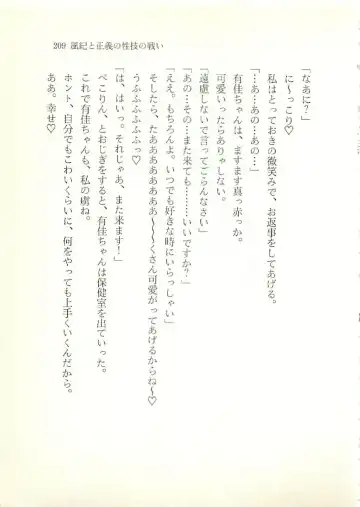 209 風紀と正義の性技の戦い
「なあに?」
に〜っこり♡
私はとっておきの微笑みで、お返事をしてあげる。
「…あ…あの…あの…」
有佳ちゃんは、ますます真っ赤っか。
可愛いったらありゃしない。
「遠慮しないで言ってごらんなさい」
「あの…その…また来ても……いいですか?」
「ええ。もちろんよ。いつでも好きな時にいらっしゃい」
そしたら、たああああああああ〜〜〜くさん可愛がってあげるからね〜♡
うふふふふふっ♡
「は、はいっ。それじゃあ、また来ます!」
ぺこりん、とおじぎをすると、有佳ちゃんは保健室を出ていった。
これで有佳ちゃんも、私の虜ね。
ホント、自分でもこわいくらいに、何をやっても上手くいくんだから。
ああ。幸せ♡